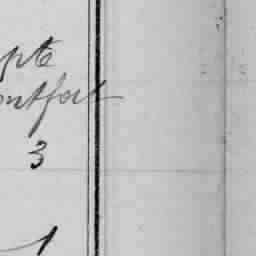 pte
ontfort
3